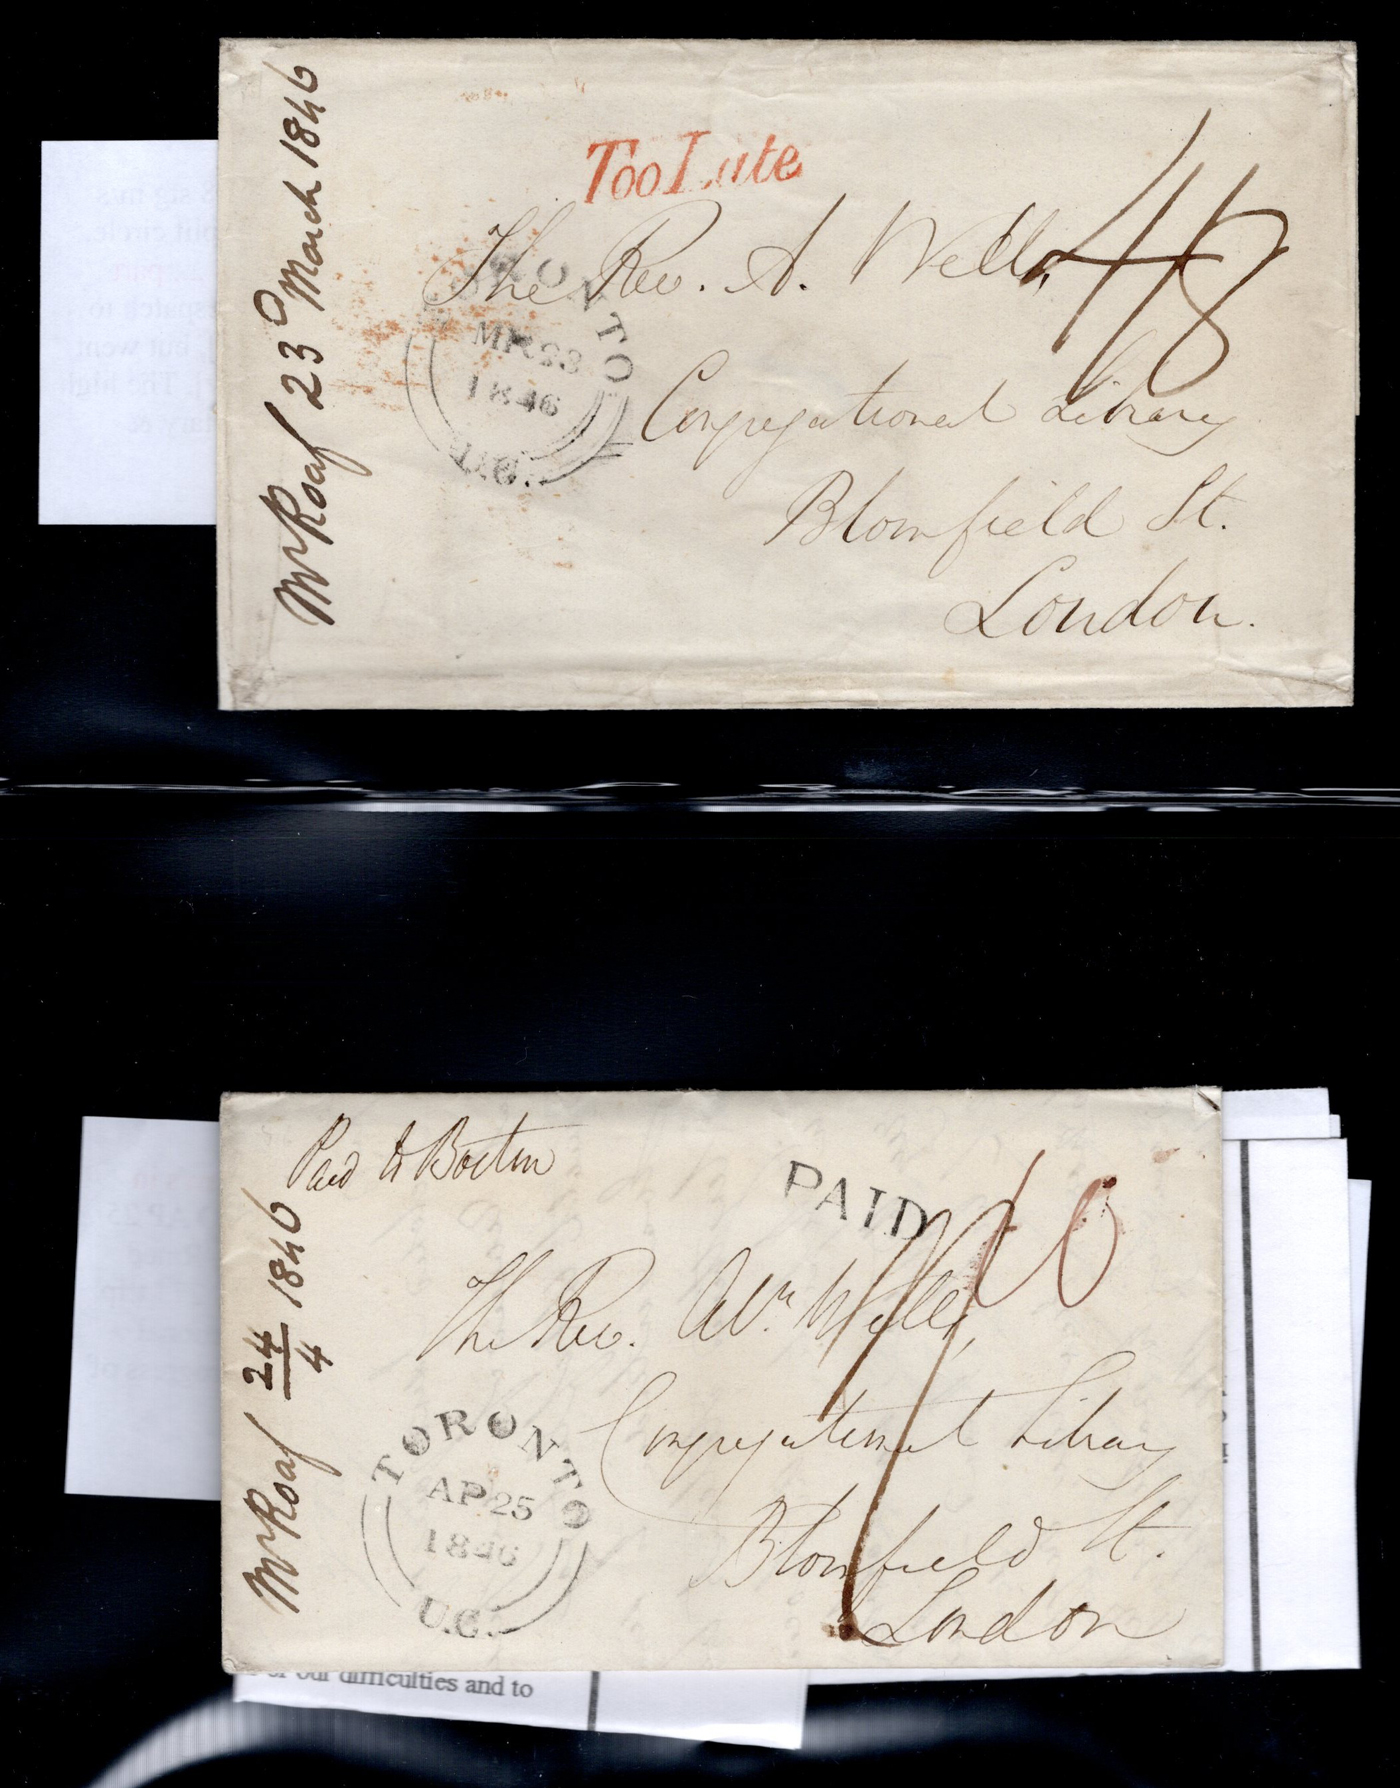 Mr Roaf 23d March 1846
Too Late
The Rev. A. Wells,
48
TORONTO
MR 23
1846
U.C.
Congregational Library
Blomfield St.
London.
Paid to Boston
Mr Roaf 24/4 1846
PAID
The Rev. Wells,
TORONTO
AP 25
1846
U.C.
Congregational Library
Blomfield St.
London
our difficulties and to